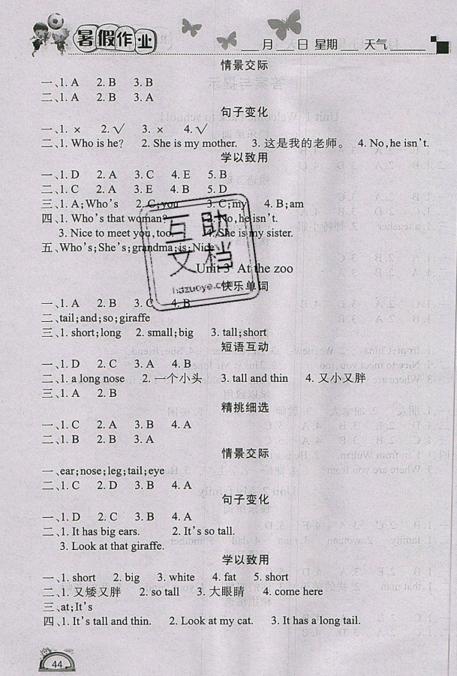 暑假作业 月 日 星期 天气
情景交际
一、1. A 2. B 3. B
二、1. B 2. B 3. A
句子变化
一、1. × 2. √ 3. × 4. √
二、1. Who is he? 2. She is my mother. 3. 这是我的老师。 4. No, he isn't.
学以致用
一、1. D 2. A 3. C 4. E 5. B
二、1. C 2. A 3. E 4. B 5. D
三、1. A; Who's 2. C; you 3. C; my 4. B; am
四、1. Who's that woman? 2. No, he isn't.
3. Nice to meet you, too. 4. She is my sister.
五、Who's; She's; grandma; is; Nick
Unit 3 At the zoo
快乐单词
一、1. A 2. B 3. C 4. B
二、tail; and; so; giraffe
三、1. short; long 2. small; big 3. tall; short
短语互动
一、1. D 2. C 3. A 4. B
二、1. a long nose 2. 一个小头 3. tall and thin 4. 又小又胖
三、1. A 2. B
精挑细选
一、1. C 2. A 3. B 4. A
二、1. B 2. B 3. A
情景交际
一、ear; nose; leg; tail; eye
二、1. C 2. D 3. B 4. A
句子变化
一、1. D 2. C 3. B 4. A
二、1. It has big ears. 2. It's so tall.
3. Look at that giraffe.
学以致用
一、1. short 2. big 3. white 4. fat 5. short
二、1. 又矮又胖 2. so tall 3. 大眼睛 4. come here
三、at; It's
四、1. It's tall and thin. 2. Look at my cat. 3. It has a long tail.
44
互助
文档
hdzuoye.com